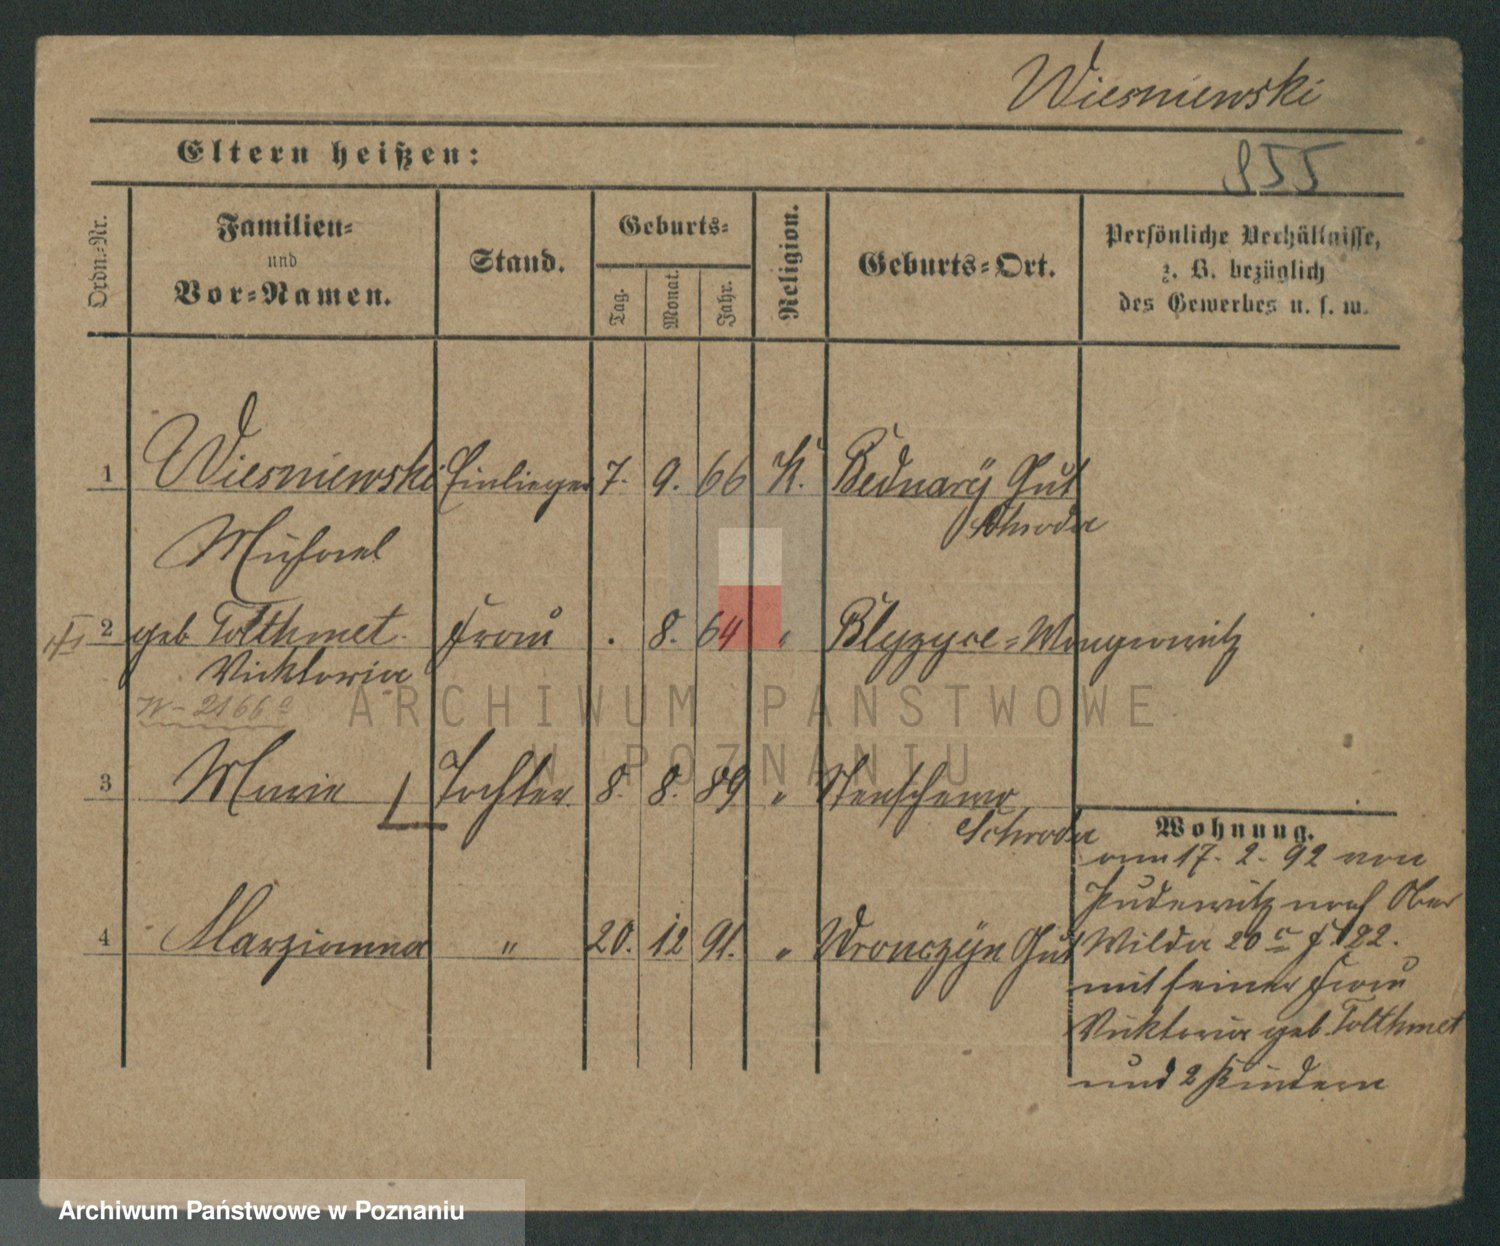 Wiesniewski
Eltern heißen:
955
Ordn.-Nr.
Familien-
und
Vor-Namen.
Stand.
Geburts-
Tag.
Monat.
Jahr.
Religion.
Geburts-Ort.
Persönliche Verhältnisse,
z. B. bezüglich
des Gewerbes u. s. w.
1 Wiesniewski Einlieger 7. 9. 66 K. Bednarÿ Gut
Schroda
Michael
2 geb Tolthmet Frau . 8. 64 "
Wongrowitz
Vicktoria
3 Marie Tochter 8. 8. 89 "
Schroda
Wohnung.
am 17. 2. 92 von
Pudewitz nach Ober
4 Marzianna " 20. 12 91. " Wronczÿn Gut
Wilda 20
mit seiner Frau
Vicktoria geb Tolthmet
und 2 Kindern
ARCHIWUM PAŃSTWOWE
W POZNANIU
Archiwum Państwowe w Poznaniu